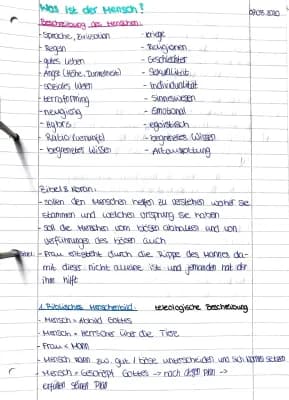 Was ist der Mensch?
07.05.2020
Beschreibung des Menschen:
- Sprache, Zivilisation
- Kriege
- Regeln
- Religionen
- gutes Leben
- Geschlechter
- Angst (Höhe, Dunkelheit)
- Sexualität
- soziales Wesen
- Individualität
- terraforming
- Sinneswesen
- neugierig
- Emotional
- Hybris
- egoistisch
- Ratio (Vernunft)
- begrenztes Wissen
- begrenztes Wissen
- Artausrottung
Bibel & Koran:
- sollen den Menschen helfen zu verstehen woher sie
stammen und welchen Ursprung sie haben
- soll die Menschen vom bösen abhalten und von
Verführungen des bösen auch
- Frau entsteht durch die Rippe des Mannes da-
mit dieser nicht alleine ist und jemanden hat der
ihm hilft
1. Biblisches Menschenbild: teleologische Beschreibung
- Mensch = Abbild Gottes
- Mensch = Herrscher über die Tiere
- Frau < Mann
- Mensch kann zw. gut / böse unterscheiden und sich
- Mensch = Geschöpf Gottes → nach dessen Plan →
erfüllen seinen Plan